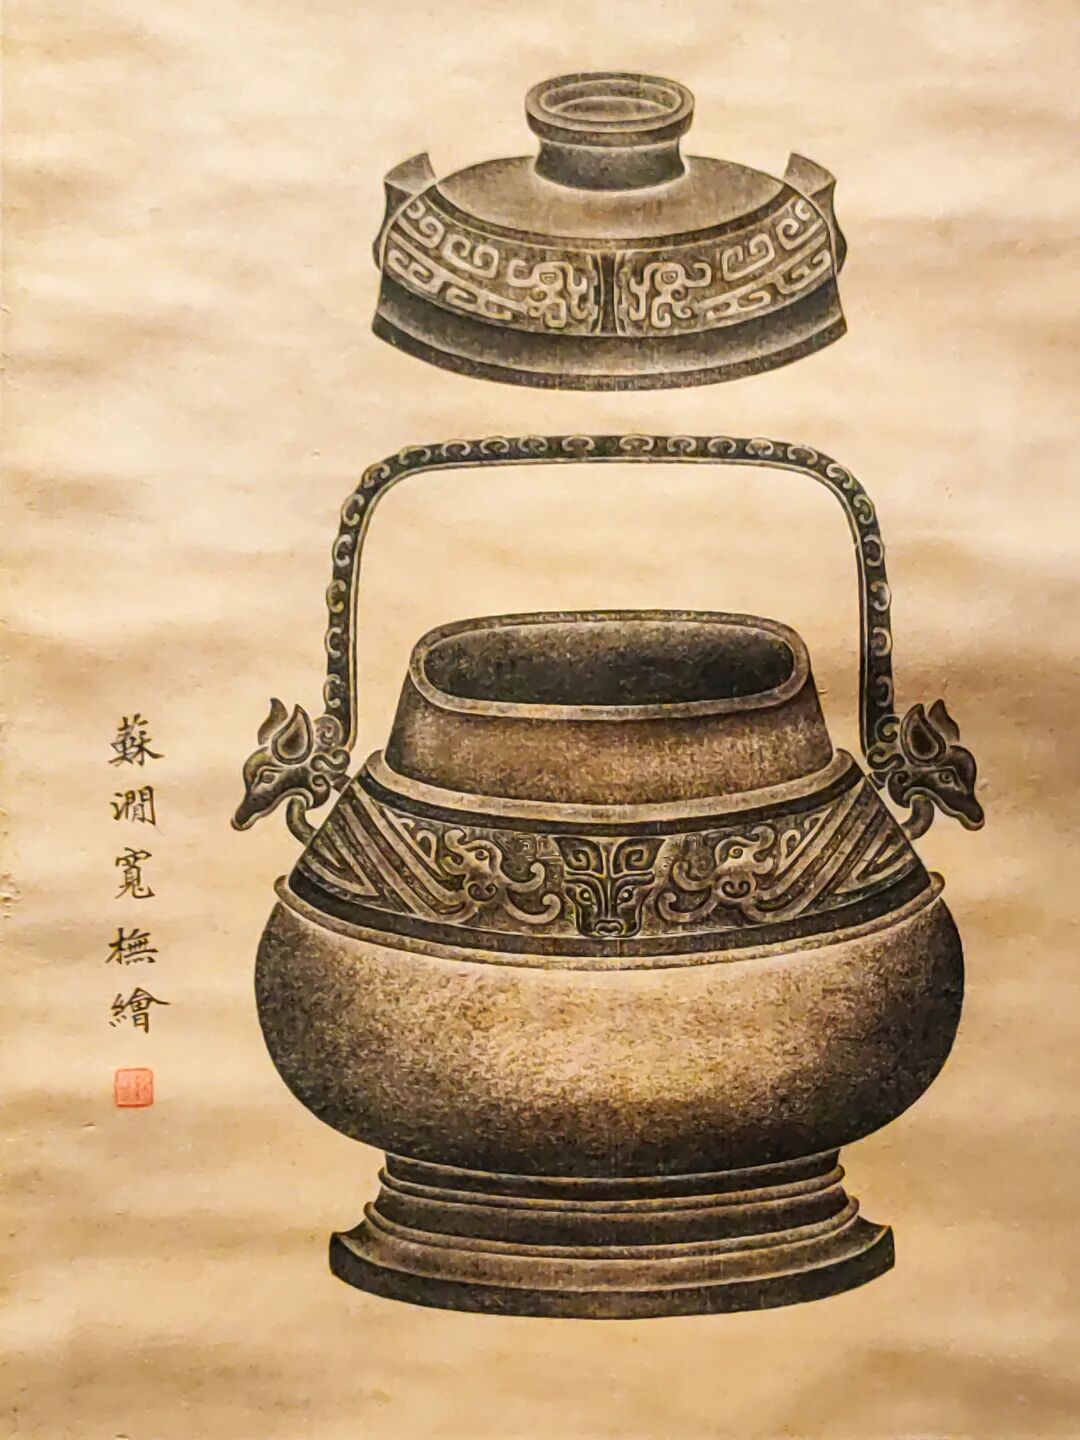 蘇澗寬橅繪